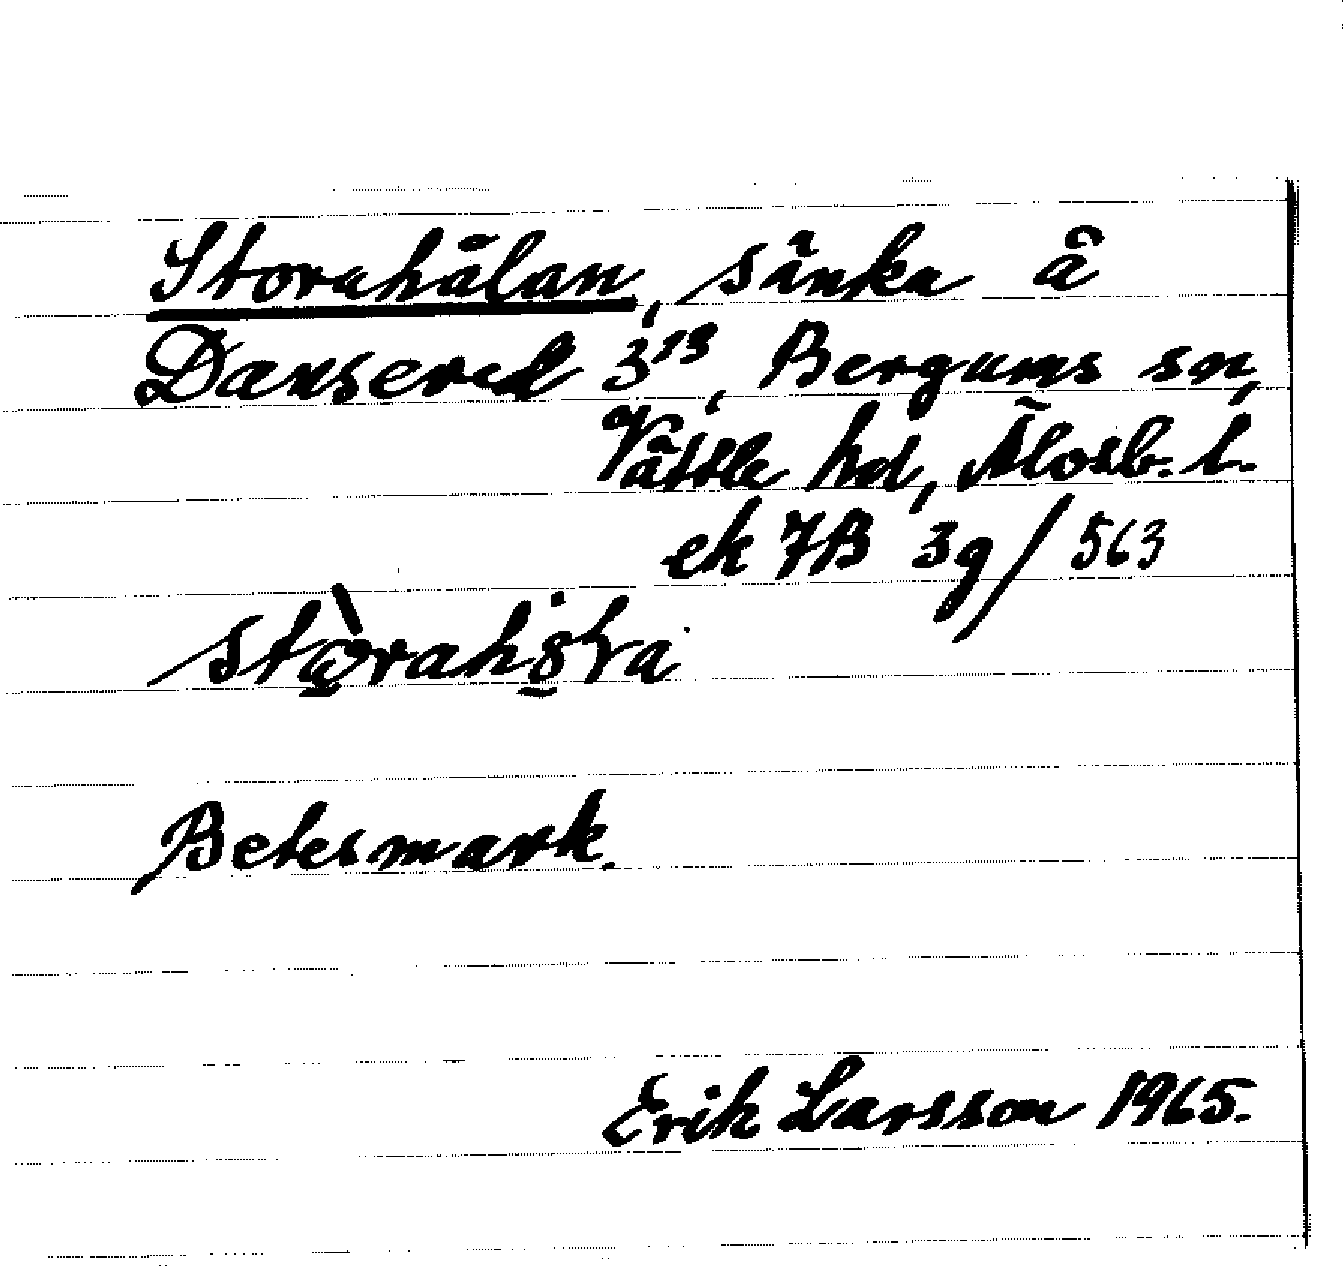 Storahålan, sänka å
Dansered 3¹³, Bergums sn,
Vättle hd, Älvsb. l.
ek 7B 3g/563
Betesmark.
Erik Larsson 1965.